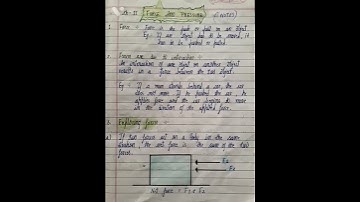 Ch-11 Force and Pressure (Notes)
1. Force - Force is the push or pull on an object
Eg : If an object has to be moved, it
has to be pushed or pulled.
2. Force are due to interaction -
An interaction of one object on another object
results in a force between the two object.
Eg - If a man stands behind a car, the car
does not move. If he pushes the car he
applies force and the car begins to move
in the direction of the applied force.
3. Exploring force -
a) If two force act on a body in the same
direction, the net force is the sum of the two
force.
F2
F1
Net force = F1 + F2